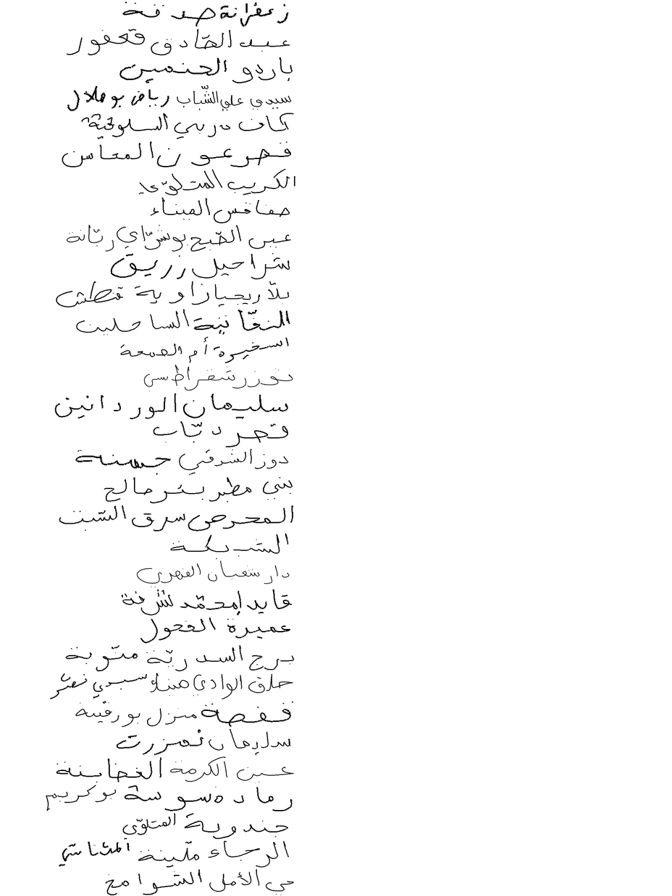 زعفرانة صدقة
عبد الصّادق قعفور
باردو الخنمين
سيدي علي الشّباب رياض بوهلال
كاف دربي السلوقيّة
قصر عون المعاس
الكريب المتلوّي
صفاقس الميناء
عين الصّبح بوش رتانة
شراحيل زريق
بلّاريجيا زاوية قنطش
النغّانيّة الساحلين
السخيرة أم الصمعة
توزر شقراطسي
سليمان الوردانين
قصر دبّاب
دوز الشرقي جمنة
بني مطير بئر صالح
المحرص سرق الشبت
الشبيكة
دار شعبان الفهري
قايد إمحمّد لشرفة
عميرة الفحول
برج السدريّة منّوبة
حلق الوادي ميناء سيدي نصر
قفصة منزل بورقيبة
سليمان تمزرت
عين الكرمة الغضابنة
رمادة سوسة بوكريم
جندوبة المتلوّي
الرجاء مليّنة المثناني
حي الأمل الشوامخ